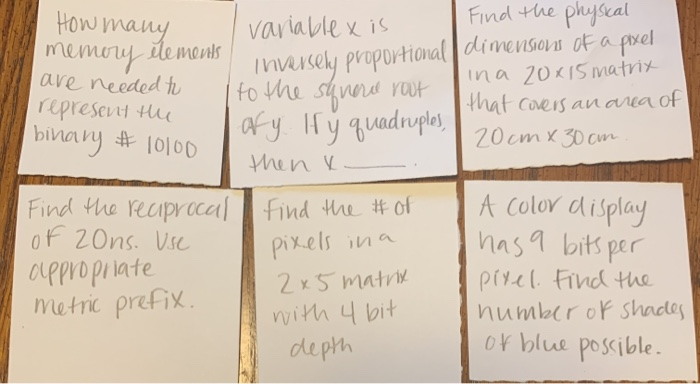 How many
memory elements
are needed to
represent the
binary # 10100
variable x is
inversely proportional
to the square root
of y. If y quadruples,
then x ____.
Find the physical
dimensions of a pixel
in a 20x15 matrix
that covers an area of
20cm x 30cm.
Find the reciprocal
of 20ns. Use
appropriate
metric prefix.
Find the # of
pixels in a
2x5 matrix
with 4 bit
depth
A color display
has 9 bits per
pixel. Find the
number of shades
of blue possible.